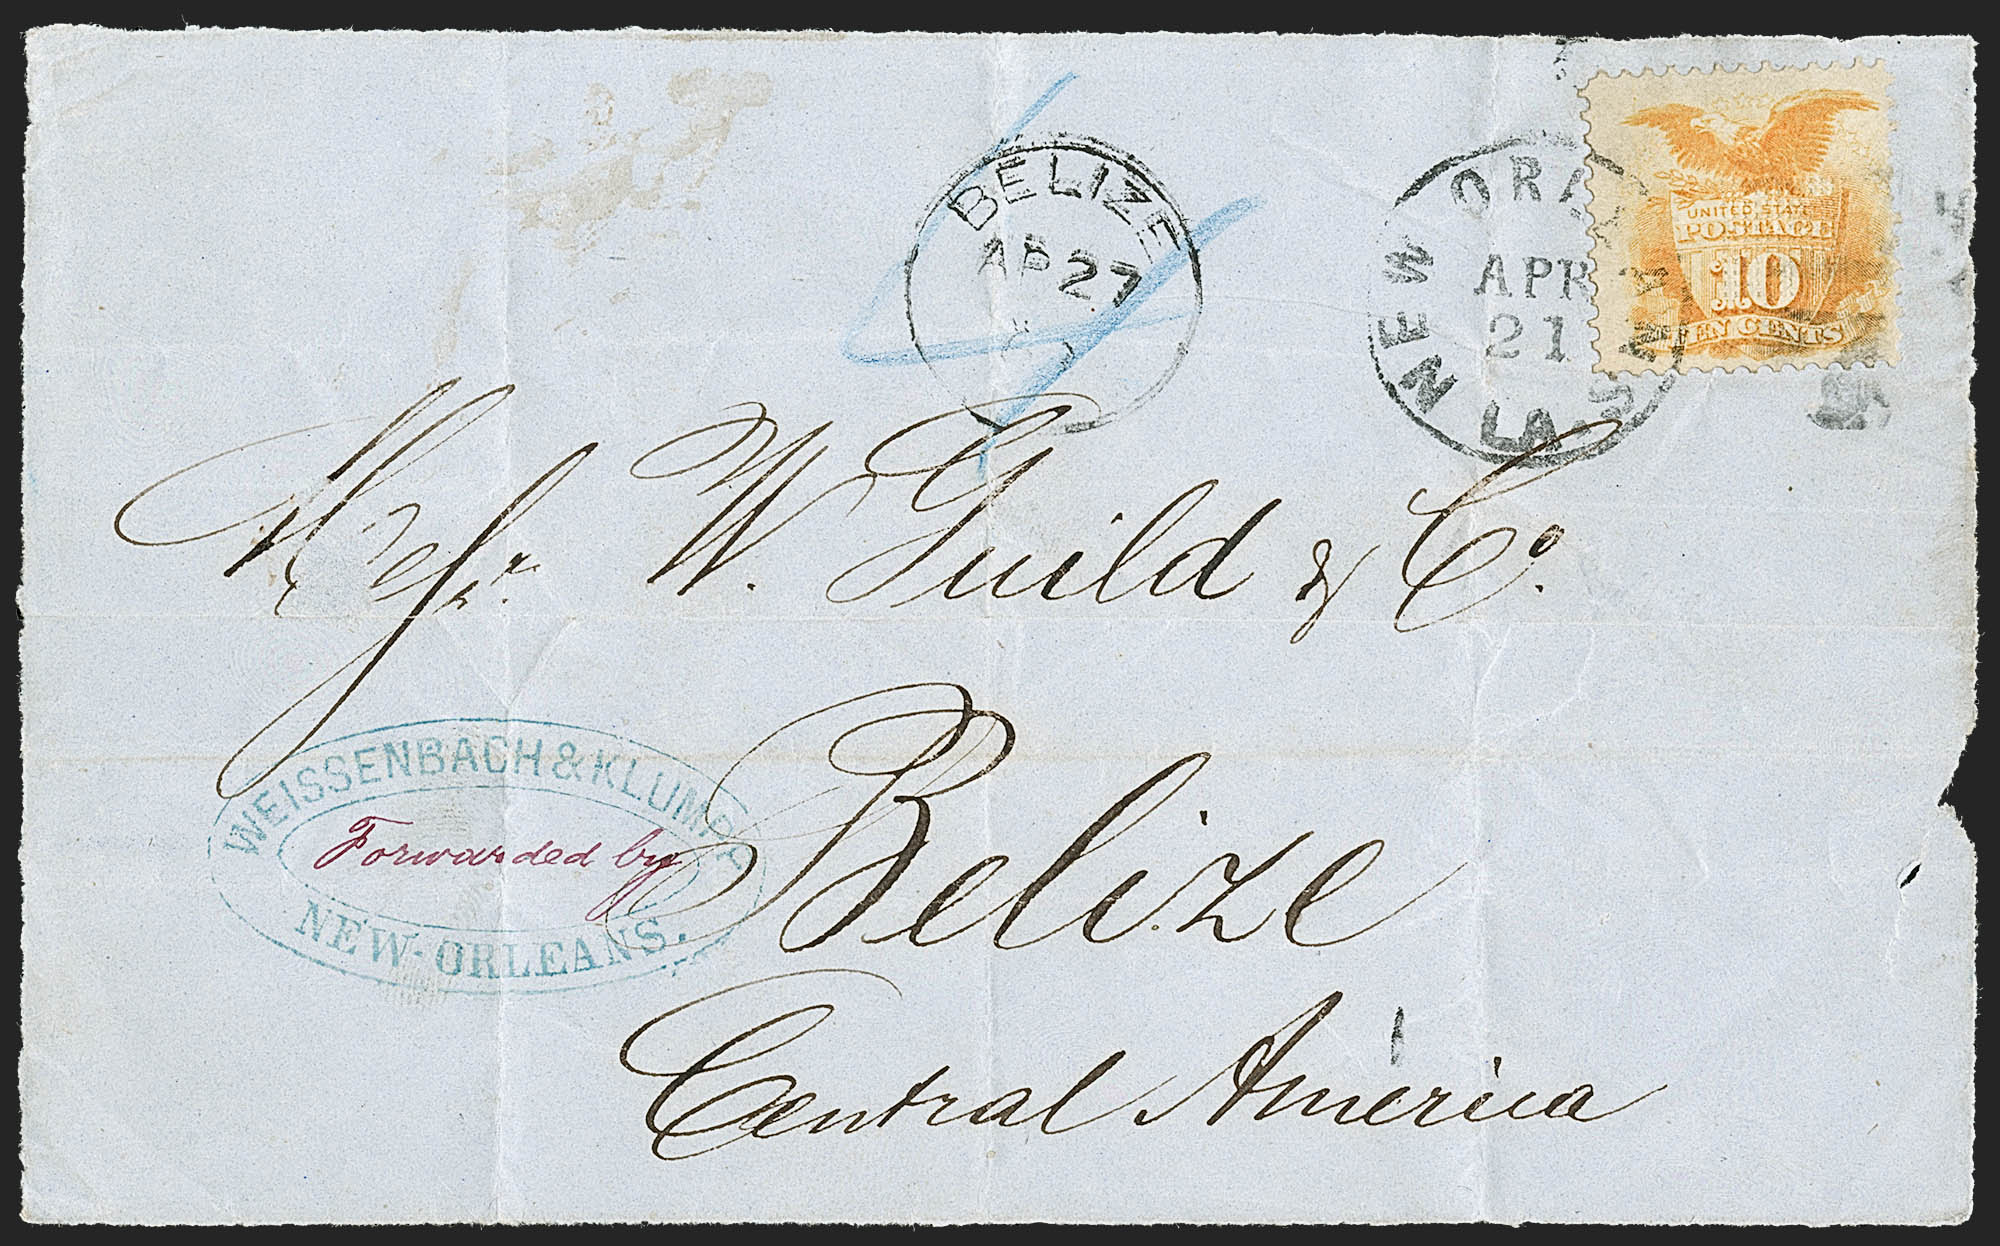 BELIZE
AP 27
NEW ORLEANS
APR
21
LA.
UNITED STATES
POSTAGE
10
TEN CENTS
Messrs. W. Guild & Co.
WEISSENBACH & KLUMPP
Forwarded by
NEW-ORLEANS.
Belize
Central America